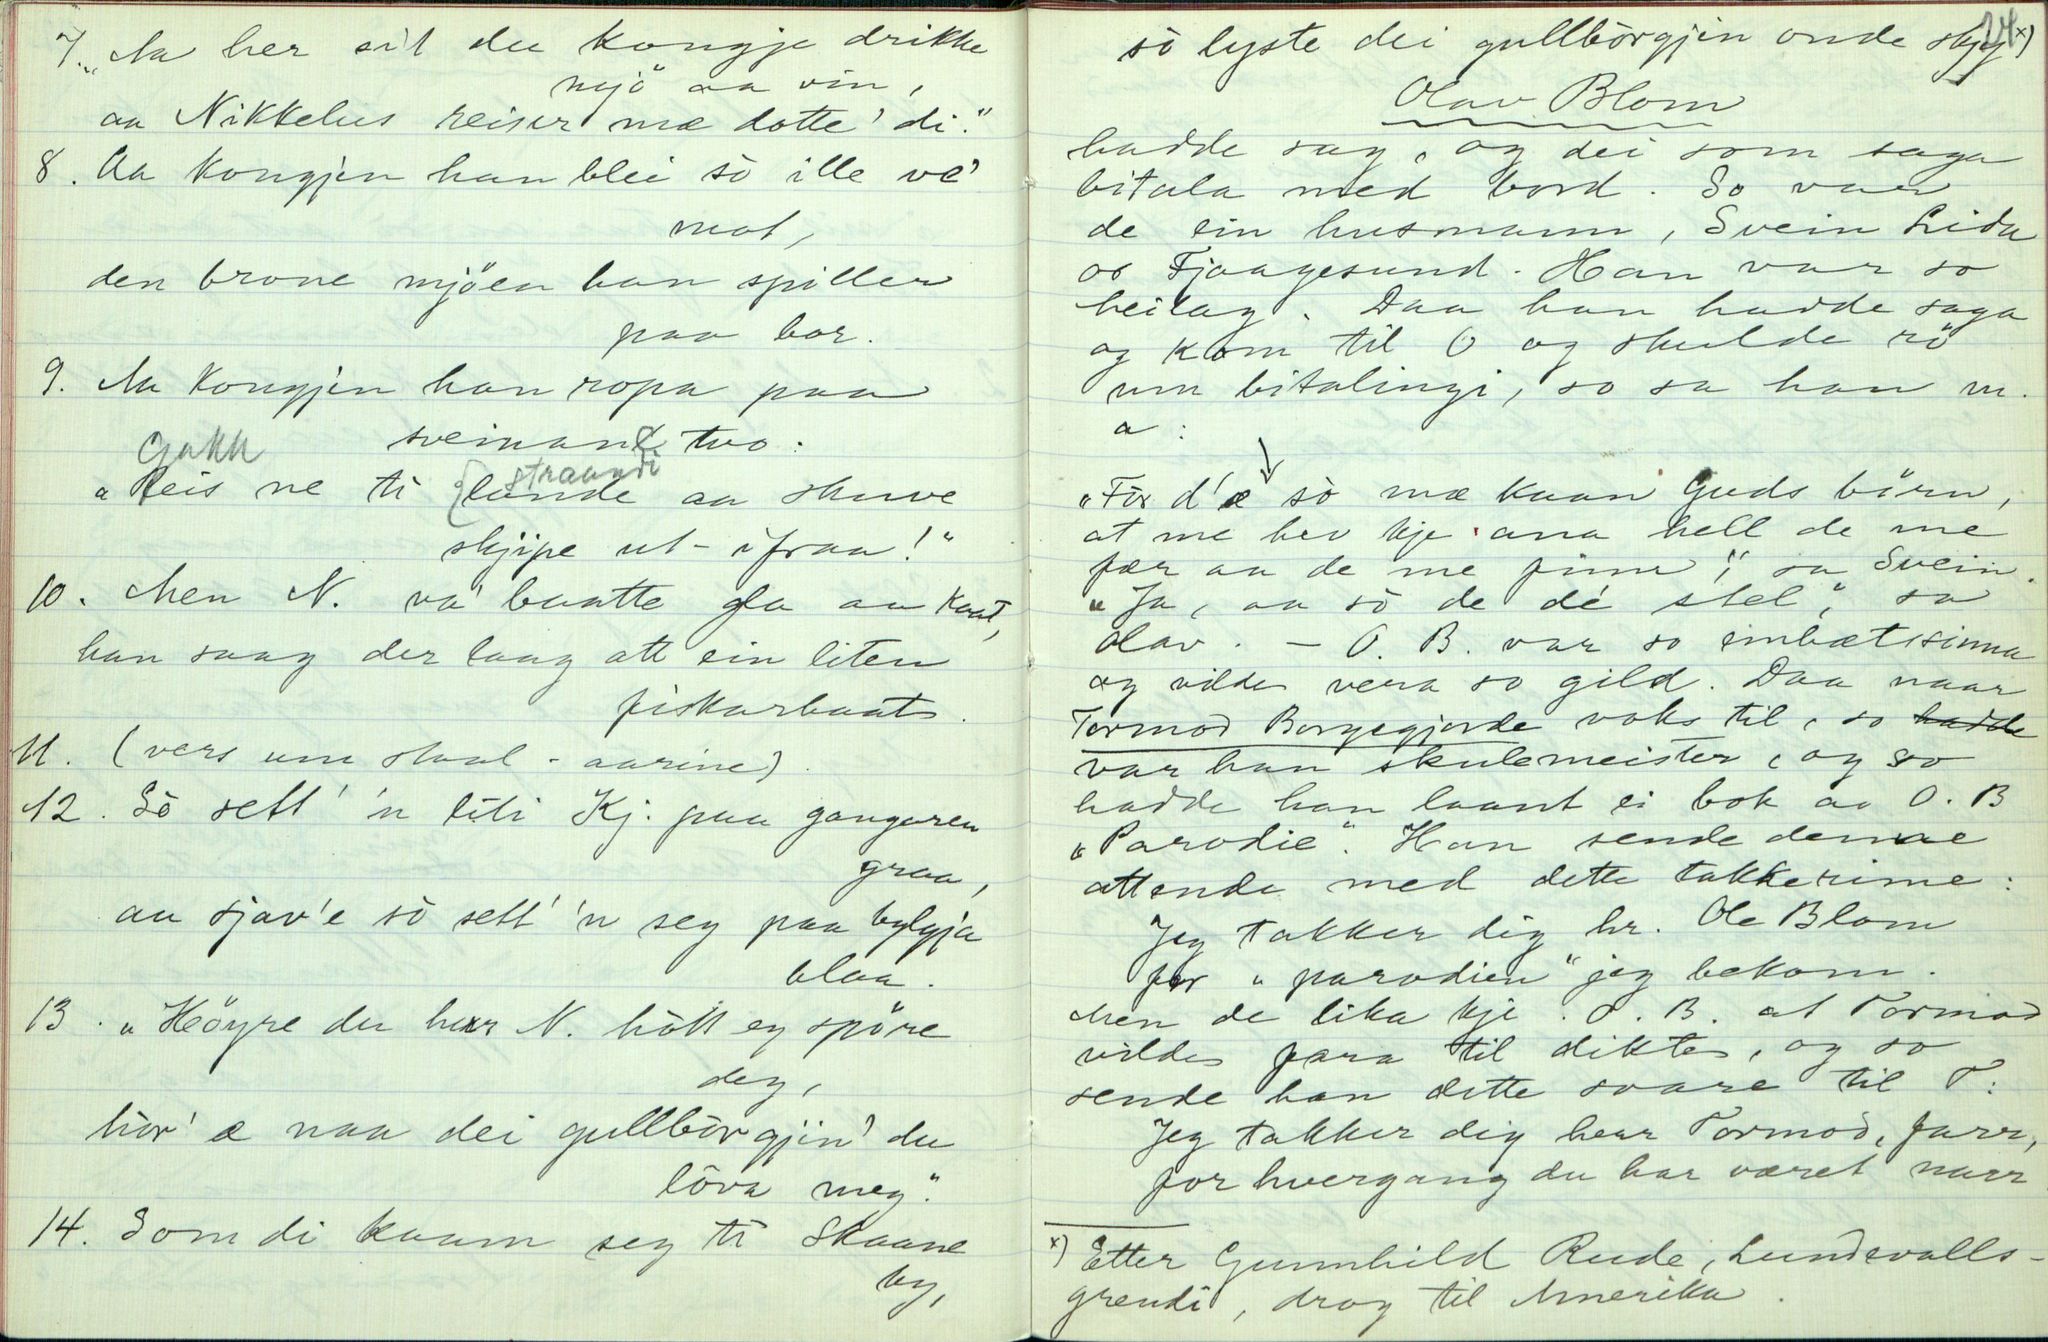 7. „Aa her sit du kongje drikke
mjö aa vin,
aa Nikkelus reiser mæ dotte' di."
8. Aa kongjen han blei sò ille ve'
mot,
den brone mjöen han spiller
paa bor.
9. Aa kongjen han ropa paa
sveinan two:
Gakk
straandi
„Reis ne ti lande aa skuve
skjipe ut-ifraa!"
10. Men N. va' baatte gla aa kaat,
han saag der laag att ein liten
fiskarbaat.
11. (vers um skaal-aarine)
12. Sò sett' 'n liti Kj. paa gangaren
graa,
aa sjav'e sò sett' 'n seg paa bylgja
blaa.
13. „Höyre du herr N. hòtt eg spöre
deg,
hòr' æ naa dei gullbòrgjin' du
lòva meg".
14. Som di kaam seg ti Skaane
by,
24
sò lyste dei gullbòrgjin onde skjy x)
Olav Blom
hadde sag, og dei som saga
bitala med bord. So var
de ein husmann, Svein Lida
os Fjaagesund. Han var so
heilag. Daa han hadde saga
og kom til O og skulde rö
um bitalingi, so sa han m.
a:
„Fòr d'æ sò mæ kaan Guds börn,
at me hev kje ana hell de me
fær aa de me finn", sa Svein.
„Ja, aa sò de dé stel", sa
Olav. – O. B. var so embætssinna
og vilde vera so gild. Daa naar
Tormod Borgegjorde voks til, so hadde
var han skulemeister, og so
hadde han laant ei bok av O. B
„Parodie". Han sende denne
attende med dette takkerime:
Jeg takker dig hr. Ole Blom
for „parodien" jeg bekom.
Men de lika kje O. B. at Tormod
vilde fara til dikte, og so
sende han dette svare til T:
Jeg takker dig herr Tormod, farr,
for hvergang du har været narr
x) Etter Gunnhild Rude, Lundevalls-
grendi, drog til Amerika.